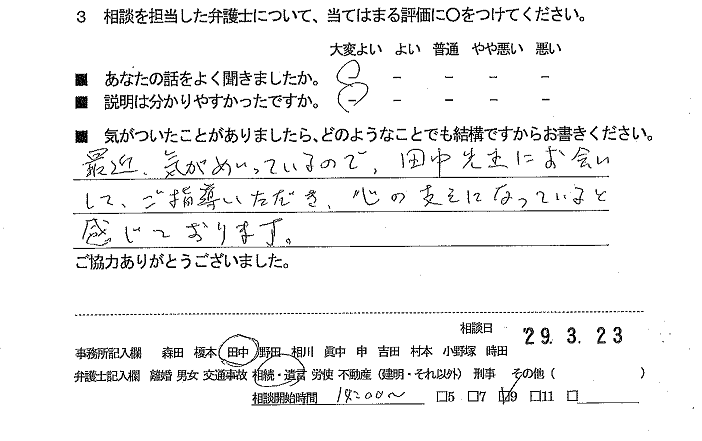 3 相談を担当した弁護士について、当てはまる評価に〇をつけてください。
大変よい よい 普通 やや悪い 悪い
■ あなたの話をよく聞きましたか。 - - - - -
■ 説明は分かりやすかったですか。 - - - - -
■ 気がついたことがありましたら、どのようなことでも結構ですからお書きください。
最近、気がめいっているので、田中先生にお会い
して、ご指導いただき、心の支えになっていると
感じております。
ご協力ありがとうございました。
相談日 29.3.23
事務所記入欄 森田 榎本 田中 野田 相川 眞中 申 吉田 村本 小野塚 時田
弁護士記入欄 離婚 男女 交通事故 相続・遺言 労使 不動産（建明・それ以外） 刑事 その他（ ）
相談開始時間 14:00～ □5 □7 ☑9 □11 □